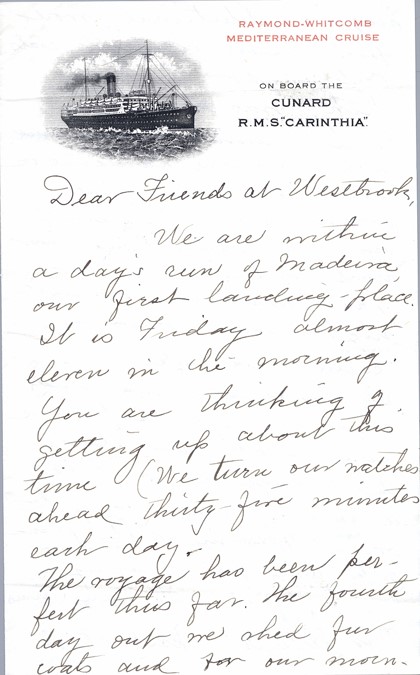 RAYMOND-WHITCOMB
MEDITERRANEAN CRUISE
ON BOARD THE
CUNARD
R.M.S. "CARINTHIA".
Dear Friends at Westbrook,
We are within
a day's run of Madeira,
our first landing-place.
It is Friday almost
eleven in the morning.
You are thinking of
getting up about this
time (We turn our watches
ahead thirty-five minutes
each day.
The voyage has been per-
fect thus far. The fourth
day out we shed fur
coats and for our morn-